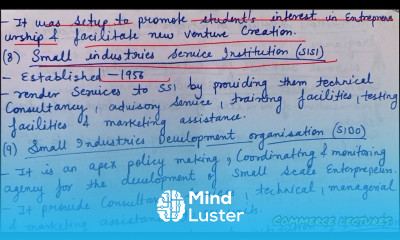 - It was setup to promote student's interest in Entrepreneu
urship & facilitate new venture Creation.
(8) Small industries Service Institution (SISI)
- Established - 1956
- render Services to SSI by providing them technical
Consultancy, advisory service, training facilities, testing
facilities & marketing assistance.
(9) Small Industries Development organisation (SIDO)
- It is an apex policy making, Coordinating & monitoring
agency for the development of Small Scale Entrepreneurs.
- It provide technical, managerial
& marketing
Mind
Luster
COMMERCE LECTURES